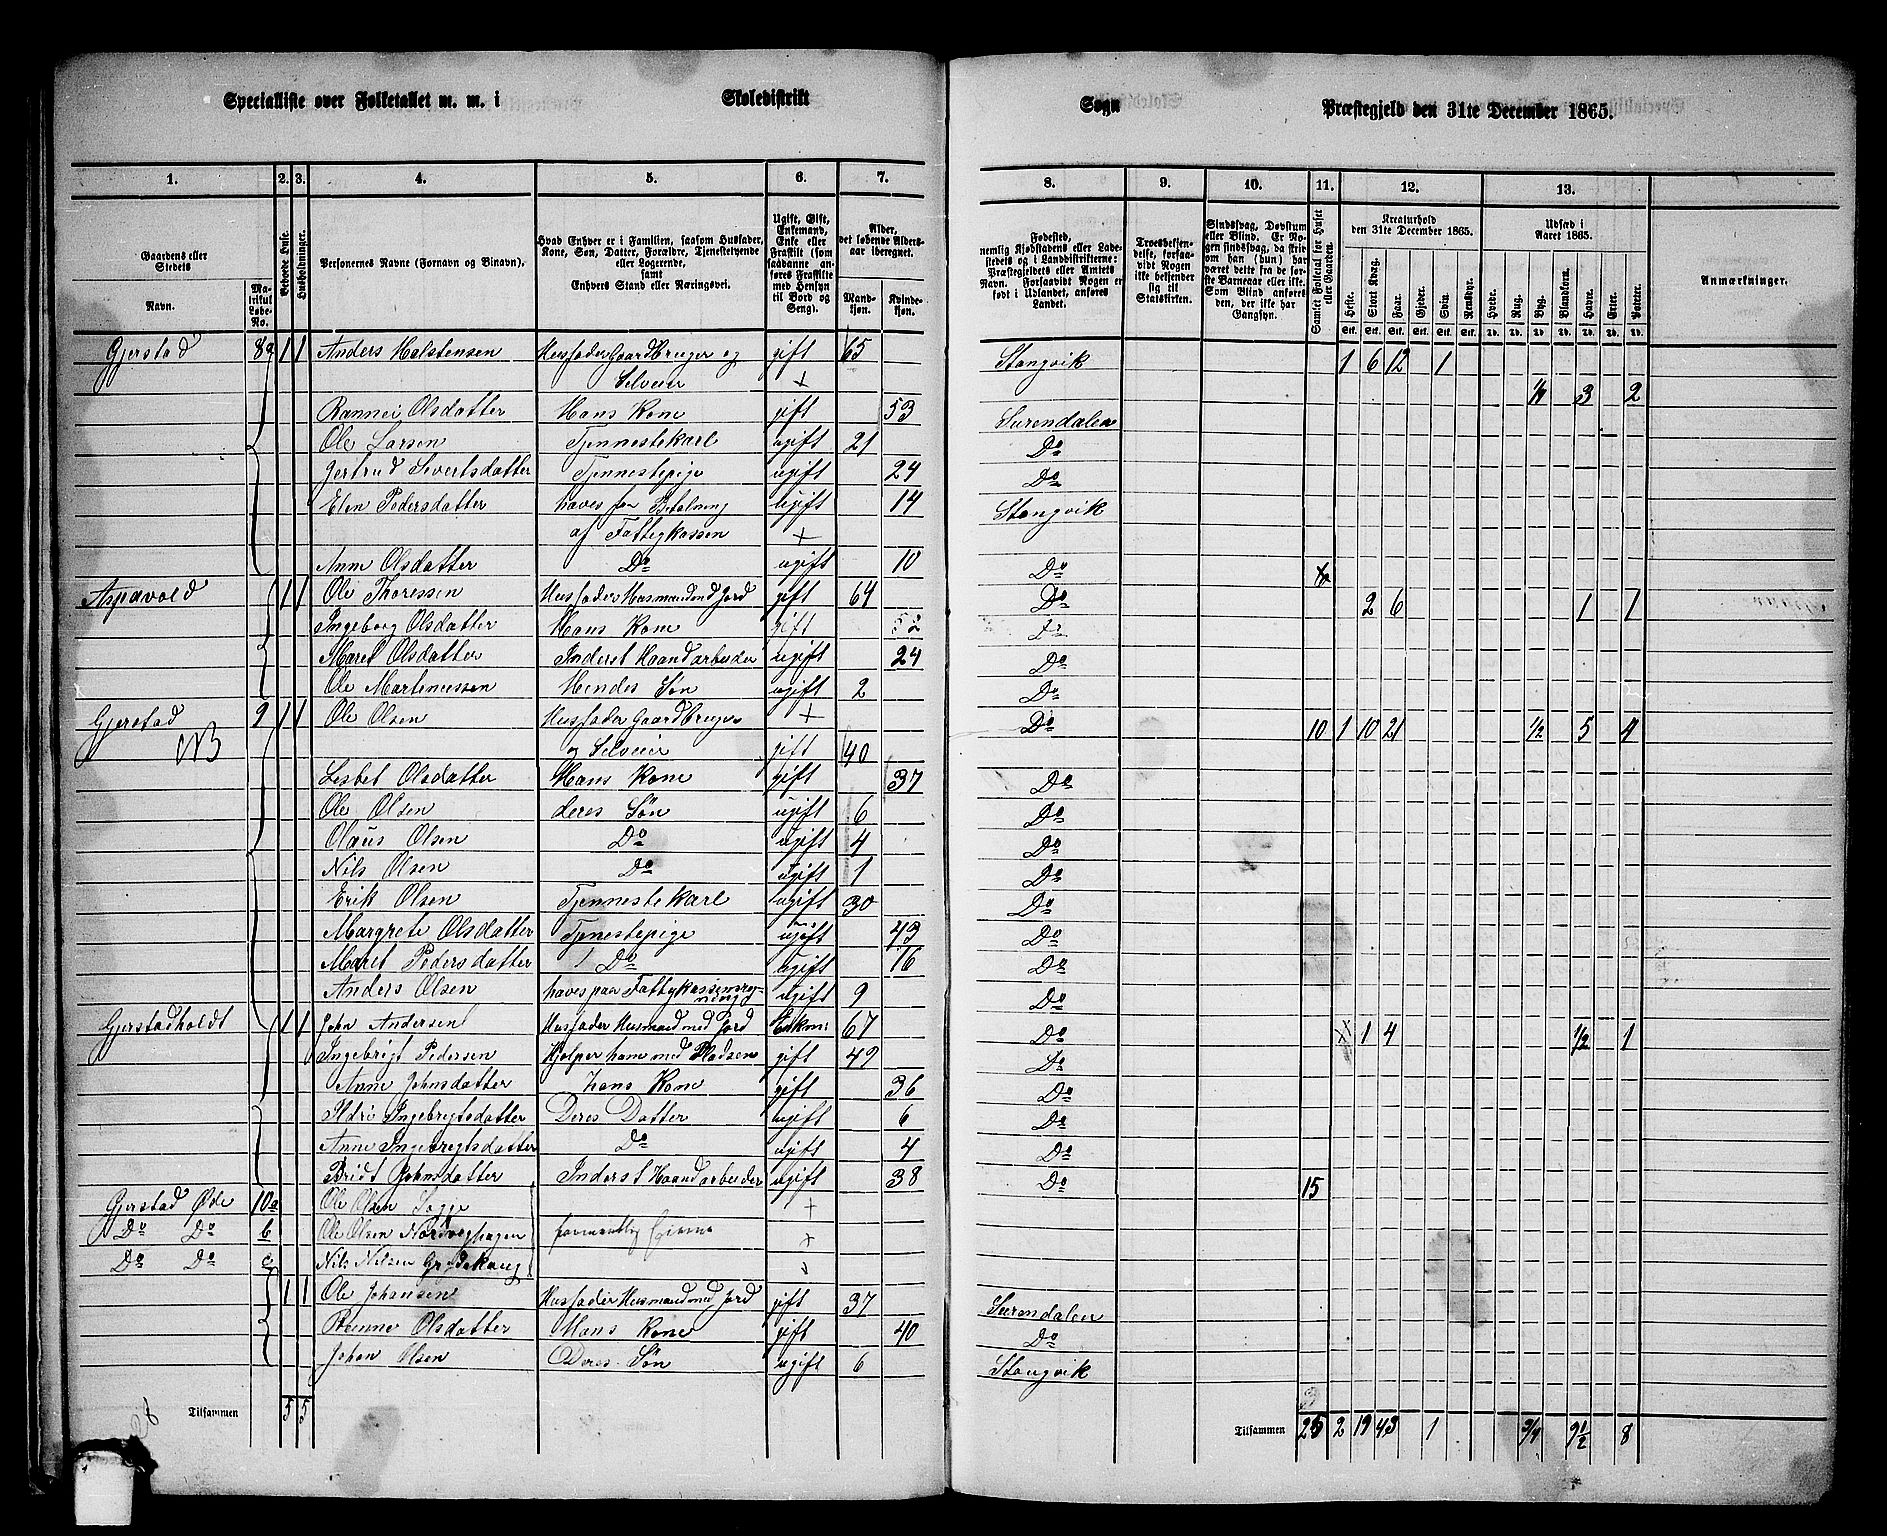 Specialliste over Folketallet m. m. i Skoledistrikt Sogn Præstegjeld den 31te December 1865.
1. 2. 3. 4. 5. 6. 7. 8. 9. 10. 11. 12. 13.
Gaardens eller Stedets
Navn.
Matrikul Løbe-No.
Beboede Huse.
Husholdninger.
Personernes Navne (Fornavn og Binavn).
Hvad Enhver er i Familien, saasom Husfader, Kone, Søn, Datter, Forældre, Tjenestetyende eller Logerende, samt
Enhvers Stand eller Næringsvei.
Ugift, Gift, Enkemand, Enke eller Fraskilt (som saadanne anføres Fraskilte med Hensyn til Bord og Seng).
Alder, det løbende Aldersaar iberegnet.
Mandkjøn. Kvindekjøn.
Fødested, nemlig Kjøbstadens eller Ladestedets og i Landdistrikterne: Præstegjeldets eller Amtets Navn. Forsaavidt Nogen er født i Udlandet, anføres Landet.
Troesbekjendelse, forsaavidt Nogen ikke bekjender sig til Statskirken.
Sindssvag, Døvstum eller Blind. Er Nogen sindssvag, da skrives om han (hun) har været dette fra de første Barneaar eller ikke. Som Blind anføres den, der ikke har Gangsyn.
Samlet Folketal for Huset eller Gaarden.
Kreaturhold den 31te December 1865.
Heste. Stort Kvæg. Faar. Gjeder. Svin. Rensdyr.
Udsæd i Aaret 1865.
Hvede. Rug. Byg. Blandkorn. Havre. Erter. Poteter.
Anmærkninger.
Gjerstad 8a 1 1 Anders Halstensen Husfader Gaardbruger og gift 65 Stangvik 1 6 12 1
Selveier + 3 2
Rannei Olsdatter Hans Kone gift 53 Surendalen
Ole Larsen Tjennestekarl ugift 21 Do
Gertrud Sivertsdatter Tjennestepige ugift 24 Do
Elen Pedersdatter haves for Betalning ugift 14 Stangvik
af Fattigkassen +
Anne Olsdatter Do ugift 10 Do
Aspavold 1 1 Ole Thoressen Husfader Husmand m Jord gift 64 Do 2 6 1 1
Ingeborg Olsdatter Hans Kone gift 52 Do
Maret Olsdatter Inderst Haandarbeider ugift 24 Do
Ole Martinussen Hendes Søn ugift 2 Do
Gjerstad 9 1 1 Ole Olsen Husfader Gaardbruger + Do 10 1 10 21 1/2 5 4
NB og Selveier gift 40
Lisbet Olsdatter Hans Kone gift 37 Do
Ole Olsen deres Søn ugift 6 Do
Olaus Olsen Do ugift 4 Do
Nils Olsen Do ugift 1 Do
Erik Olsen Tjennestekarl ugift 30 Do
Margrete Olsdatter Tjenestepige ugift 43 Do
Maret Pedersdatter Do ugift 16 Do
Anders Olsen haves paa Fattigkassensregning ugift 9 Do
Gjerstadholdt 1 1 John Andersen Husfader Husmand med Jord Enkm: 67 Do 1 4 1/2 1
Ingebrigt Pedersen Hjelper ham med Pladsen gift 49 Do
Anne Johnsdatter hans Kone gift 36 Do
Ildri Ingebrigtsdatter Deres Datter ugift 6 Do
Anne Ingebrigtsdatter Do ugift 4 Do
Bridt Johnsdatter Inderst Haandarbeider ugift 38 Do 15
Gjerstad Øde 10a Ole Olsen +
Do Do b Ole Olsen Nordvighagen +
Do Do c Nils Nilsen
1 1 Ole Johansen Husfader Husmand med Jord gift 37 Surendalen
Olsdatter Hans Kone gift 40 Do
Johan Olsen Deres Søn ugift 6 Stangvik
28 Tilsammen 5 5 Tilsammen 2 19 43 1 3/4 9 1/2 8